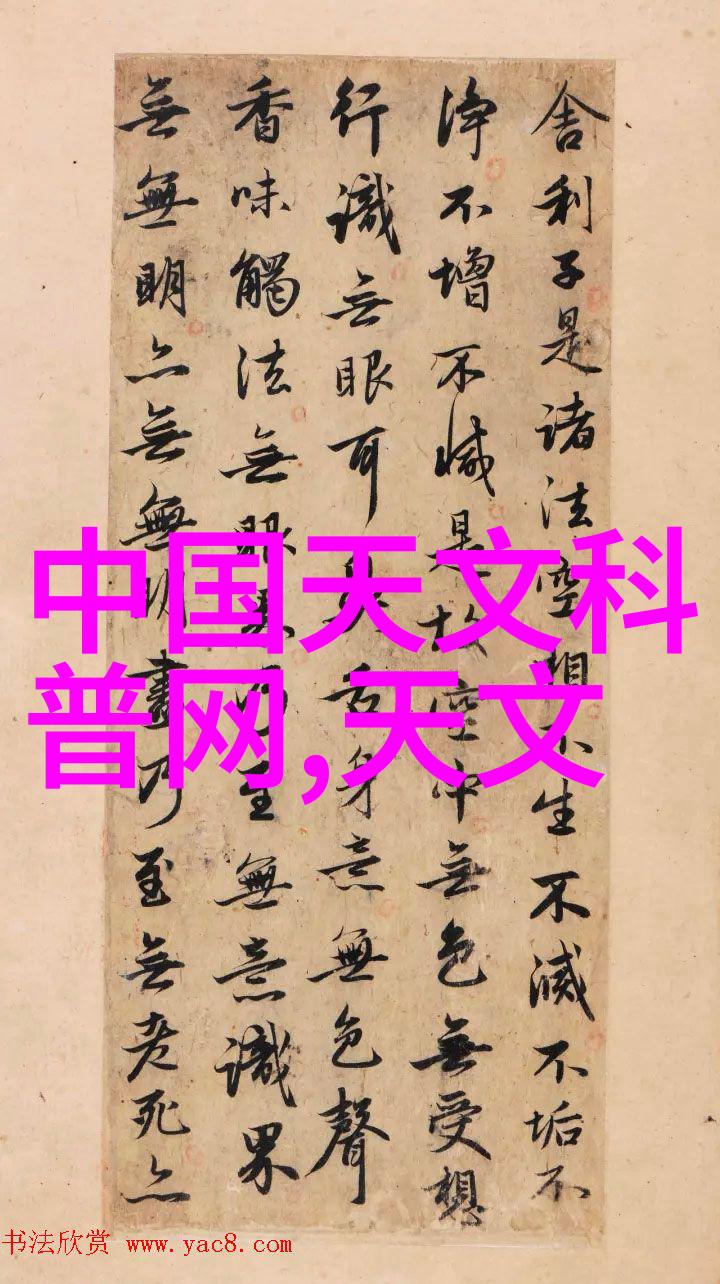 舍利子是諸法空相不生不滅不垢不
淨不增不減是故空中無色無受想
行識無眼耳鼻舌身意無色聲
香味觸法無眼界乃至無意識界
無無明亦無無明盡乃至無老死亦
中国天文科
普网,天文
书法欣赏 www.yac8.com